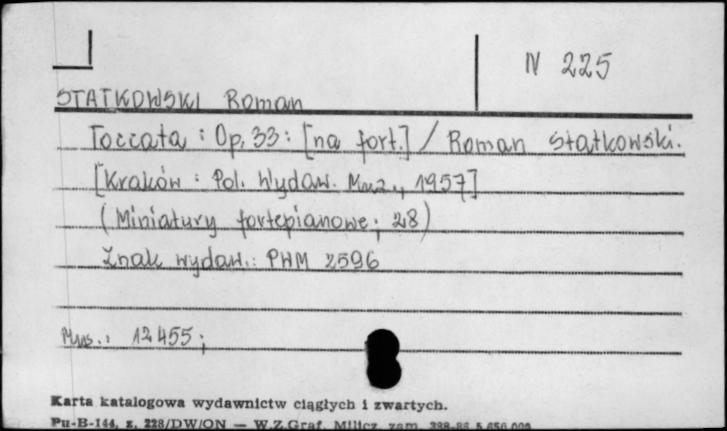 N 225
STATKOWSKI Roman
Toccata : Op. 33 : [na fort.] / Roman Statkowski.
[Kraków : Pol. Wydaw. Muz., 1957]
(Miniatury fortepianowe ; 28)
Znak wydaw.: PWM 2596
Mus.: 12455;
Karta katalogowa wydawnictw ciągłych i zwartych.
Pu-B-144, z. 228/DW/ON — W.Z.Graf. Milicz, zam.